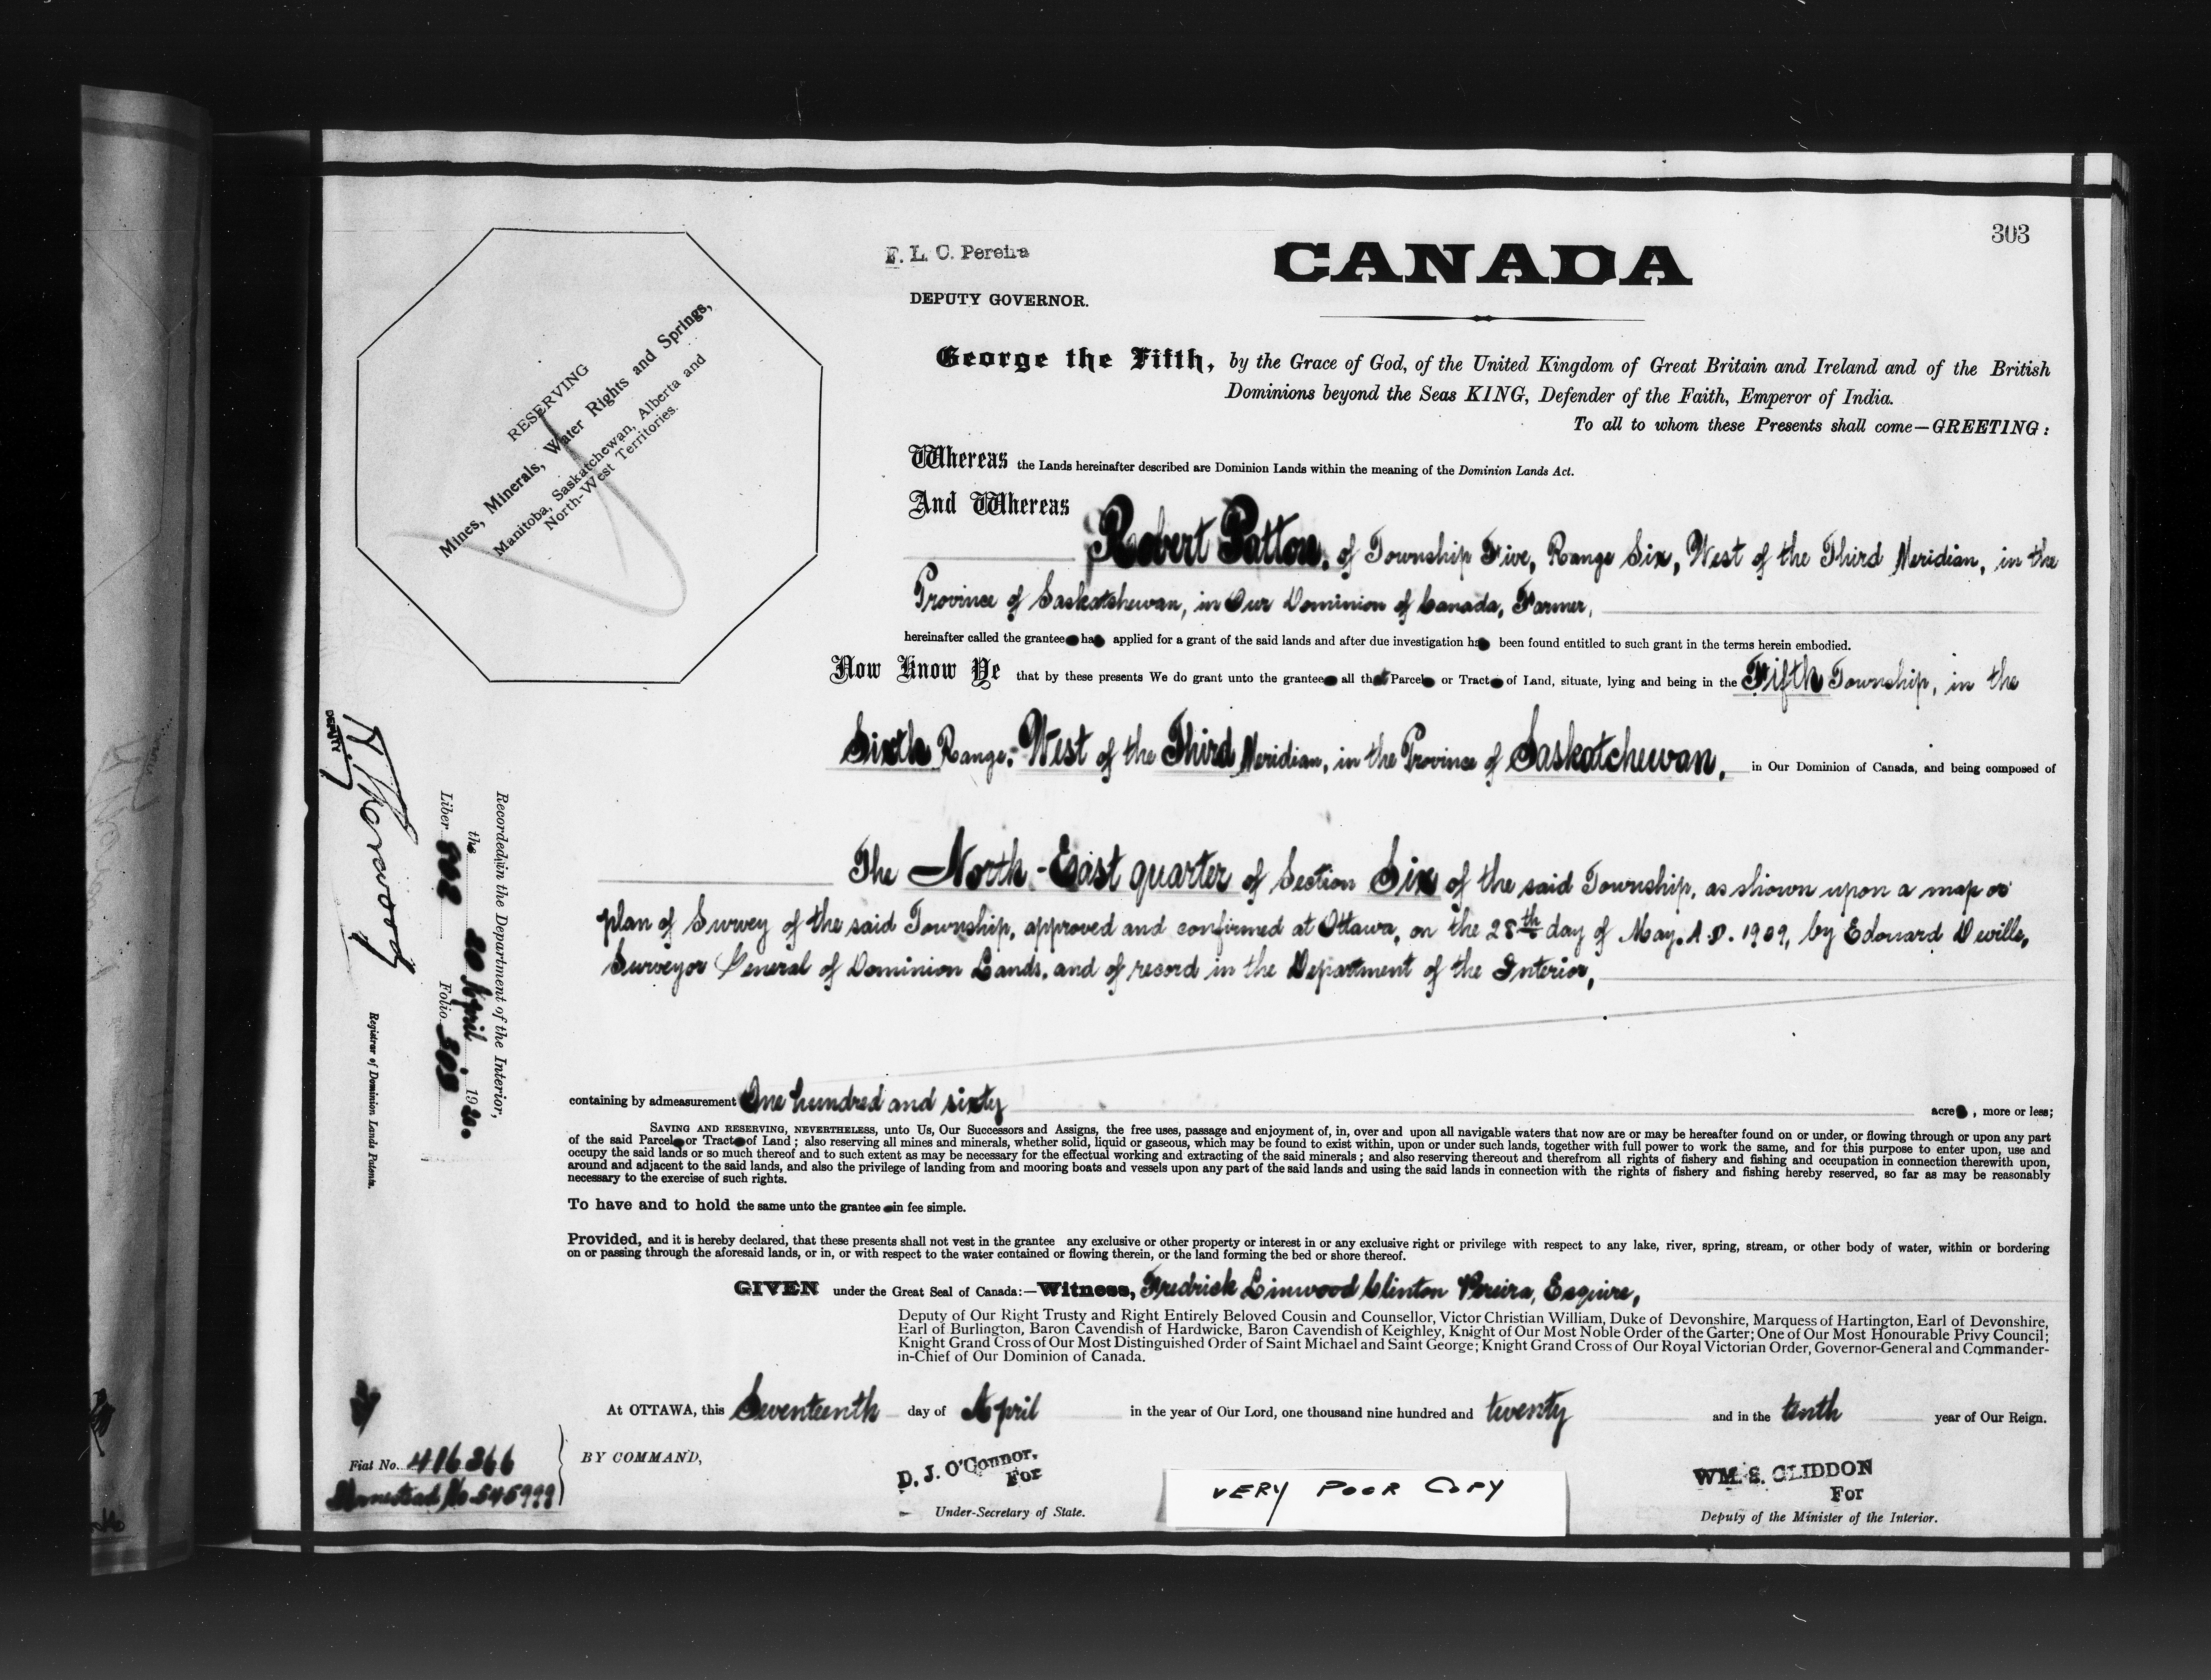 303
F. L. C. Pereira
DEPUTY GOVERNOR.
CANADA
RESERVING
Mines, Minerals, Water Rights and Springs,
Manitoba, Saskatchewan, Alberta and
North-West Territories.
George the Fifth, by the Grace of God, of the United Kingdom of Great Britain and Ireland and of the British
Dominions beyond the Seas KING, Defender of the Faith, Emperor of India.
To all to whom these Presents shall come—GREETING:
Whereas the Lands hereinafter described are Dominion Lands within the meaning of the Dominion Lands Act.
And Whereas
Robert Patton, of Township Five, Range Six, West of the Third Meridian, in the
Province of Saskatchewan, in Our Dominion of Canada, Farmer,
hereinafter called the grantee ha applied for a grant of the said lands and after due investigation ha been found entitled to such grant in the terms herein embodied.
Now Know Ye that by these presents We do grant unto the grantee all that Parcel or Tract of Land, situate, lying and being in the Fifth Township, in the
Sixth Range, West of the Third Meridian, in the Province of Saskatchewan, in Our Dominion of Canada, and being composed of
The North-East quarter of Section Six of the said Township, as shown upon a map or
plan of Survey of the said Township, approved and confirmed at Ottawa, on the 28th day of May, A.D. 1909, by Edouard Deville,
Surveyor General of Dominion Lands, and of record in the Department of the Interior,
containing by admeasurement One hundred and sixty acre , more or less;
SAVING AND RESERVING, NEVERTHELESS, unto Us, Our Successors and Assigns, the free uses, passage and enjoyment of, in, over and upon all navigable waters that now are or may be hereafter found on or under, or flowing through or upon any part
of the said Parcel or Tract of Land; also reserving all mines and minerals, whether solid, liquid or gaseous, which may be found to exist within, upon or under such lands, together with full power to work the same, and for this purpose to enter upon, use and
occupy the said lands or so much thereof and to such extent as may be necessary for the effectual working and extracting of the said minerals; and also reserving thereout and therefrom all rights of fishery and fishing and occupation in connection therewith upon,
around and adjacent to the said lands, and also the privilege of landing from and mooring boats and vessels upon any part of the said lands and using the said lands in connection with the rights of fishery and fishing hereby reserved, so far as may be reasonably
necessary to the exercise of such rights.
To have and to hold the same unto the grantee in fee simple.
Provided, and it is hereby declared, that these presents shall not vest in the grantee any exclusive or other property or interest in or any exclusive right or privilege with respect to any lake, river, spring, stream, or other body of water, within or bordering
on or passing through the aforesaid lands, or in, or with respect to the water contained or flowing therein, or the land forming the bed or shore thereof.
GIVEN under the Great Seal of Canada:—Witness, Fredrick Linwood Clinton Pereira, Esquire,
Deputy of Our Right Trusty and Right Entirely Beloved Cousin and Counsellor, Victor Christian William, Duke of Devonshire, Marquess of Hartington, Earl of Devonshire,
Earl of Burlington, Baron Cavendish of Hardwicke, Baron Cavendish of Keighley, Knight of Our Most Noble Order of the Garter; One of Our Most Honourable Privy Council;
Knight Grand Cross of Our Most Distinguished Order of Saint Michael and Saint George; Knight Grand Cross of Our Royal Victorian Order, Governor-General and Commander-
in-Chief of Our Dominion of Canada.
At OTTAWA, this Seventeenth day of April in the year of Our Lord, one thousand nine hundred and twenty and in the tenth year of Our Reign.
BY COMMAND,
D. J. O'Connor.
For
Under-Secretary of State.
VERY POOR COPY
WM. S. GLIDDON
For
Deputy of the Minister of the Interior.
Recorded in the Department of the Interior,
the 20 April, 1920.
Liber Folio 303
DEPUTY
Registrar of Dominion Lands Patents.
Fiat No. 416366
Homestead No